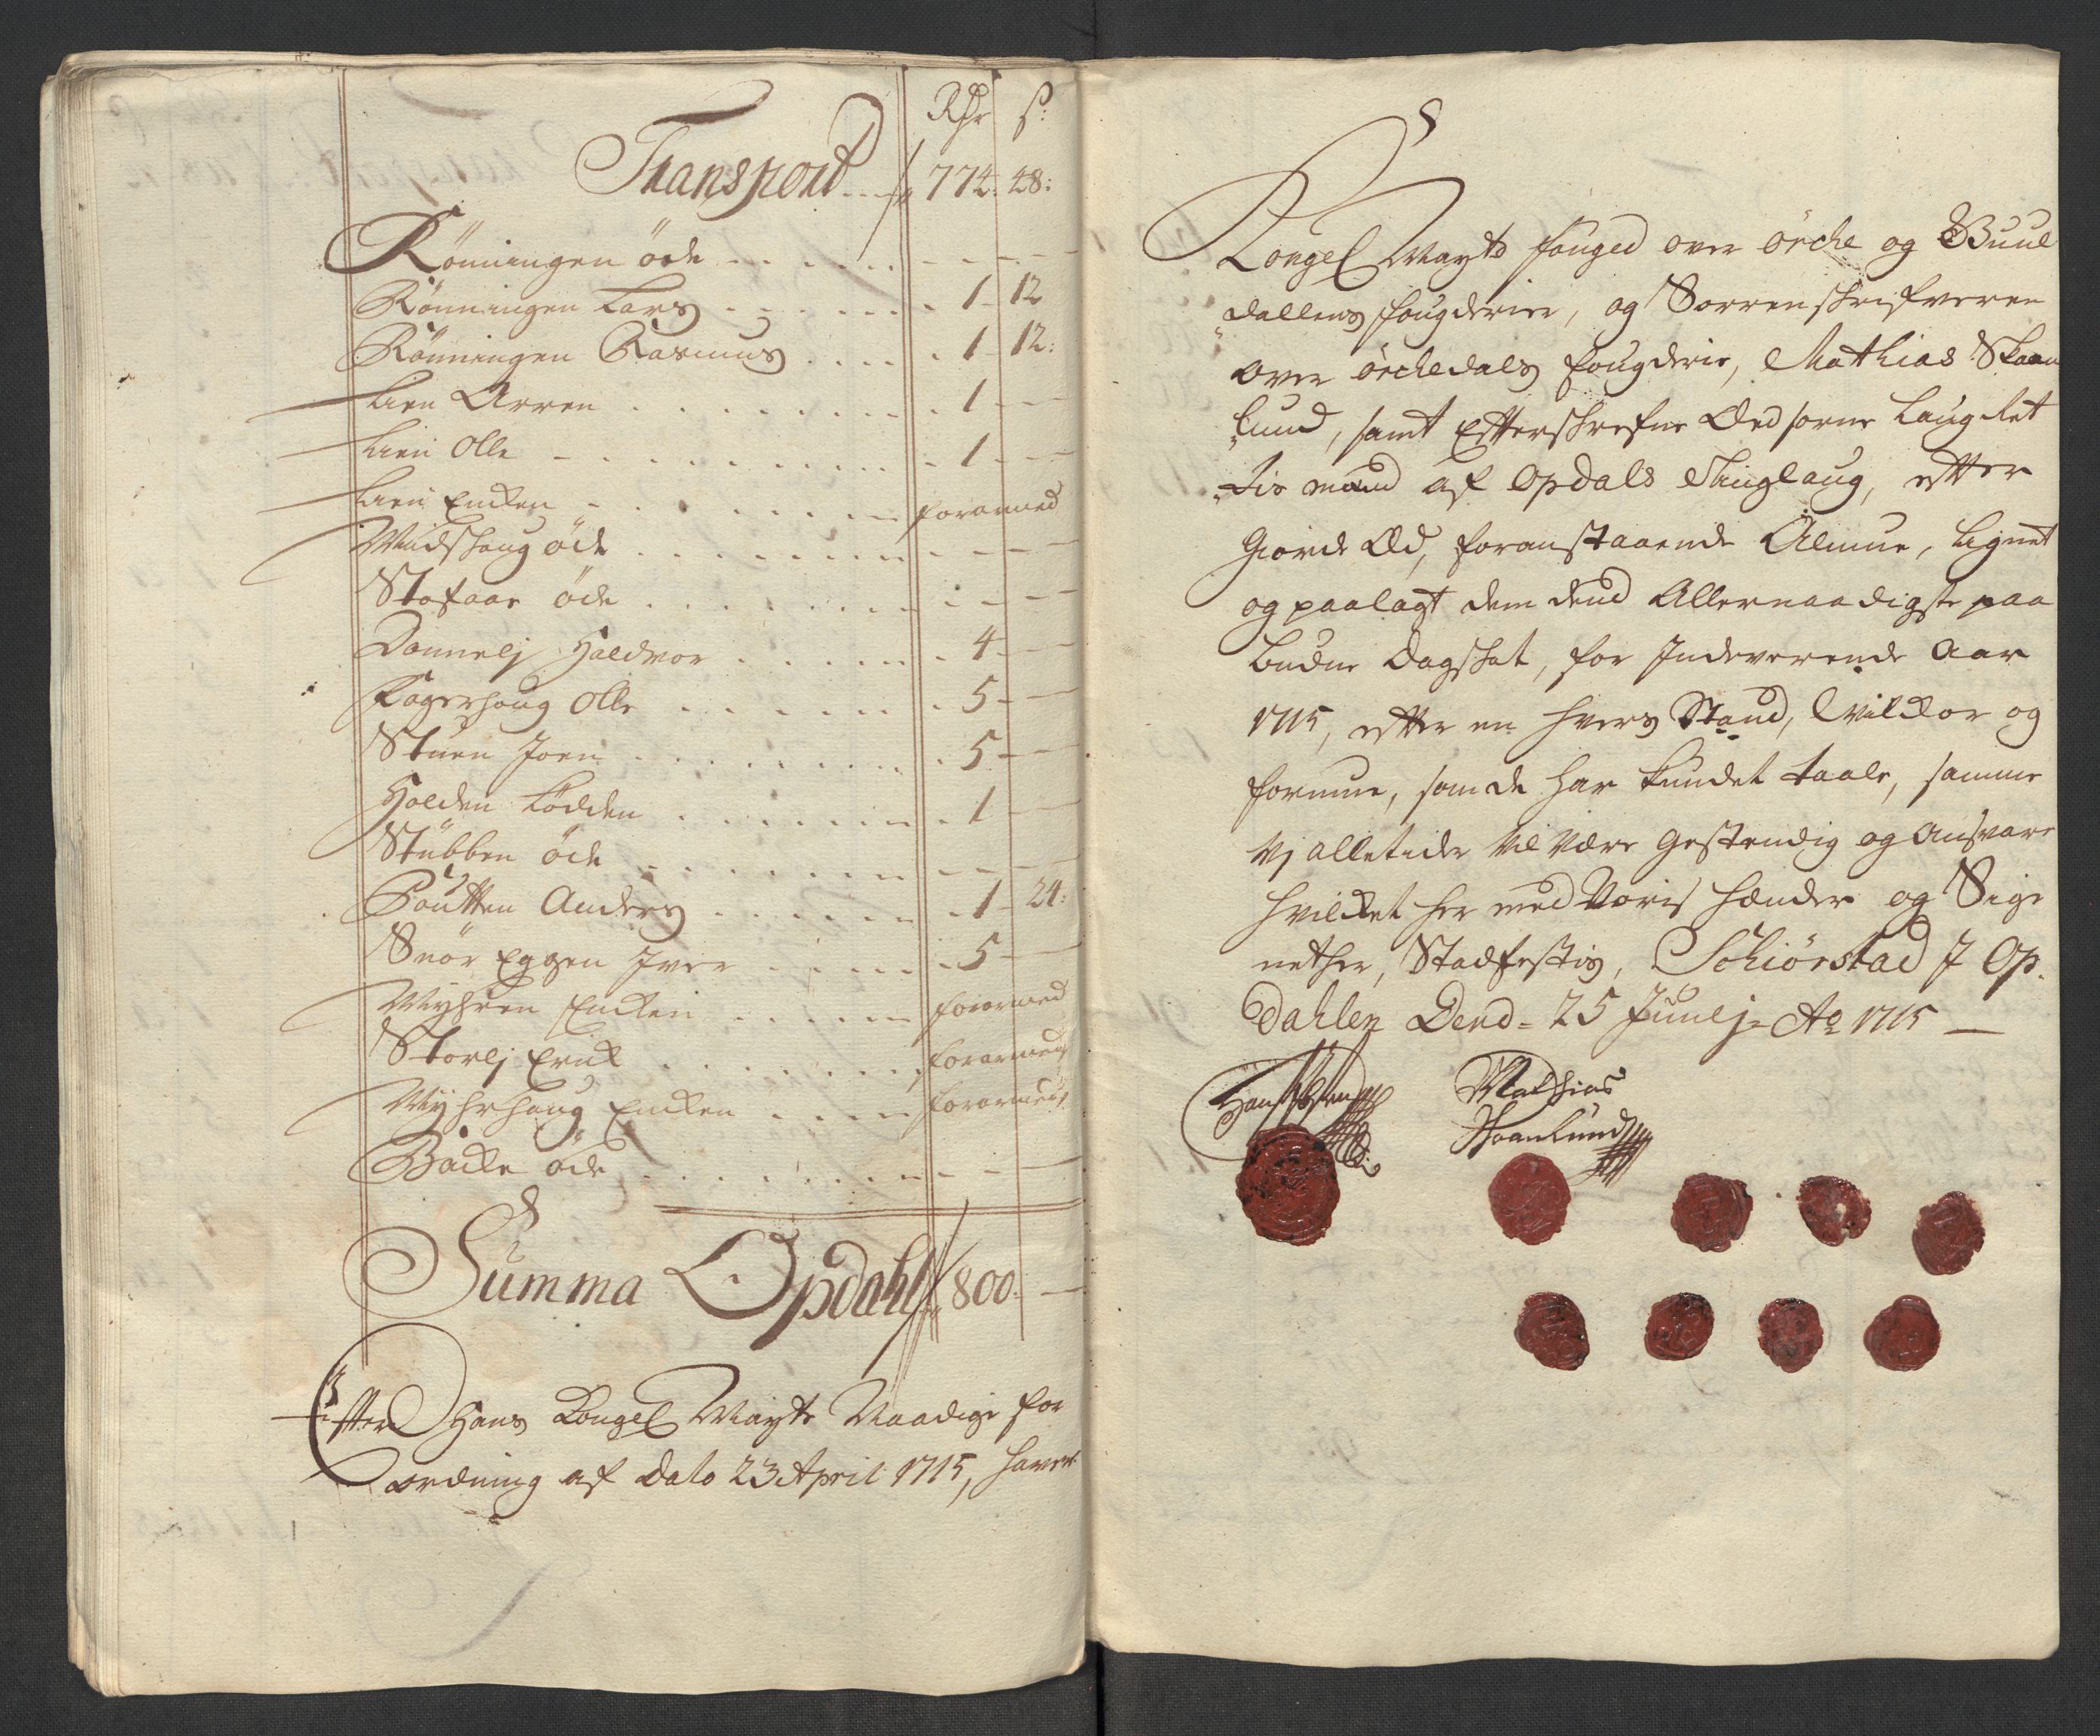 Rdr s:
Transport - - 774: 48:
Rönningen öde
Rönningen Lars 1 - 12
Rönningen Rasmus 1 - 12:
Lien Arren 1
Lien Olle 1
Lien Encken forarmed
Midshoug öde
Stofaar öde
Donnelj Haldvor 4
Fagerhoug Olle 5
Stuen Joen 5
Holden Lodden 1
Stübben öde
Poütten Anders 1 - 24:
Snör Eggen Iver 5
Myhren Encken forarmed
Storlj Erick forarmed
Myhrhoug Encken forarmed
Backe öde
Summa Opdahl 800:
Effter Hans Kongel Mayts Naadige for
ordning af dato 23 April 1715, haver
Kongel Mayts fouged over örche og Guul
dallens fougderier, og Sorrenskrifveren
over örchedals fougderie, Mathias Skaan
lund, samt Efterskrefne Eed sorne Laugret
tis mænd af Opdals Tinglaug, efter
Giorde Eed, foranstaaende Almue, lignet
og paalagt dem dend Allernaadigste paa
budne Dagskat, for Indeverende Aar
1715, efter en hvers Stand, Vilckor og
formue, som de har kundet taale, samme
Vj alletider vil være Gestendig og Ansvare
hvilcket her med Voris hænder og Sig
nether, Stadfestis, Schiörstad J Op.
Dahlen Dend - 25 Junij Ao 1715 -
Mathias
Skaanlund